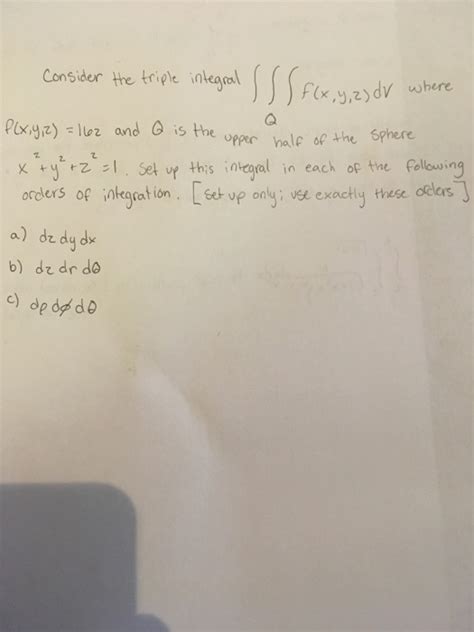 Consider the triple integral ∫∫∫ f(x,y,z) dV where
Q
f(x,y,z) = 16z and Q is the upper half of the sphere
x² + y² + z² = 1. Set up this integral in each of the following
orders of integration. [Set up only; use exactly these orders]
a) dz dy dx
b) dz dr dθ
c) dρ dφ dθ